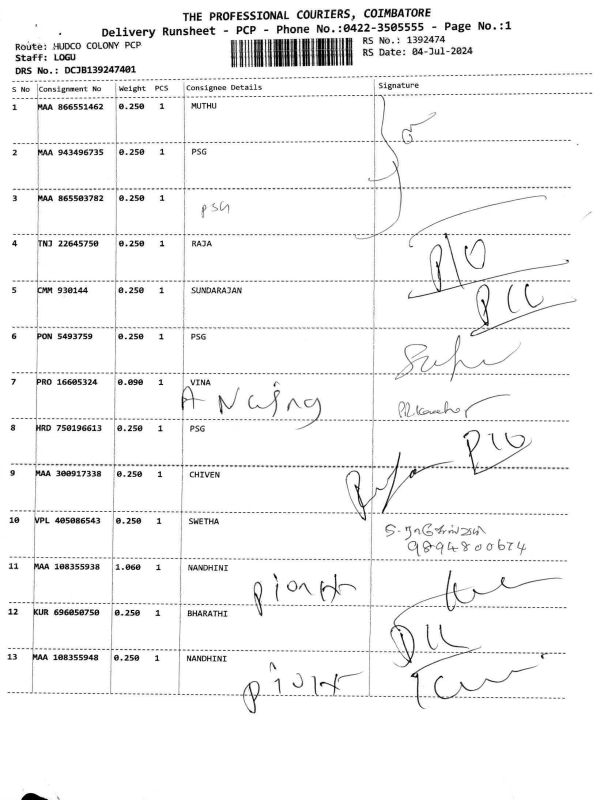 THE PROFESSIONAL COURIERS, COIMBATORE
Delivery Runsheet - PCP - Phone No.:0422-3505555 - Page No.:1
Route: HUDCO COLONY PCP
RS No.: 1392474
Staff: LOGU
RS Date: 04-Jul-2024
DRS No.: DCJB139247401
S No Consignment No Weight PCS Consignee Details Signature
1 MAA 866551462 0.250 1 MUTHU
2 MAA 943496735 0.250 1 PSG
3 MAA 865503782 0.250 1
PSG
4 TNJ 22645750 0.250 1 RAJA
5 CMM 930144 0.250 1 SUNDARAJAN
6 PON 5493759 0.250 1 PSG
7 PRO 16605324 0.090 1 VINA
8 HRD 750196613 0.250 1 PSG
9 MAA 300917338 0.250 1 CHIVEN
10 VPL 405086543 0.250 1 SWETHA
9894800674
11 MAA 108355938 1.060 1 NANDHINI
12 KUR 696050750 0.250 1 BHARATHI
13 MAA 108355948 0.250 1 NANDHINI